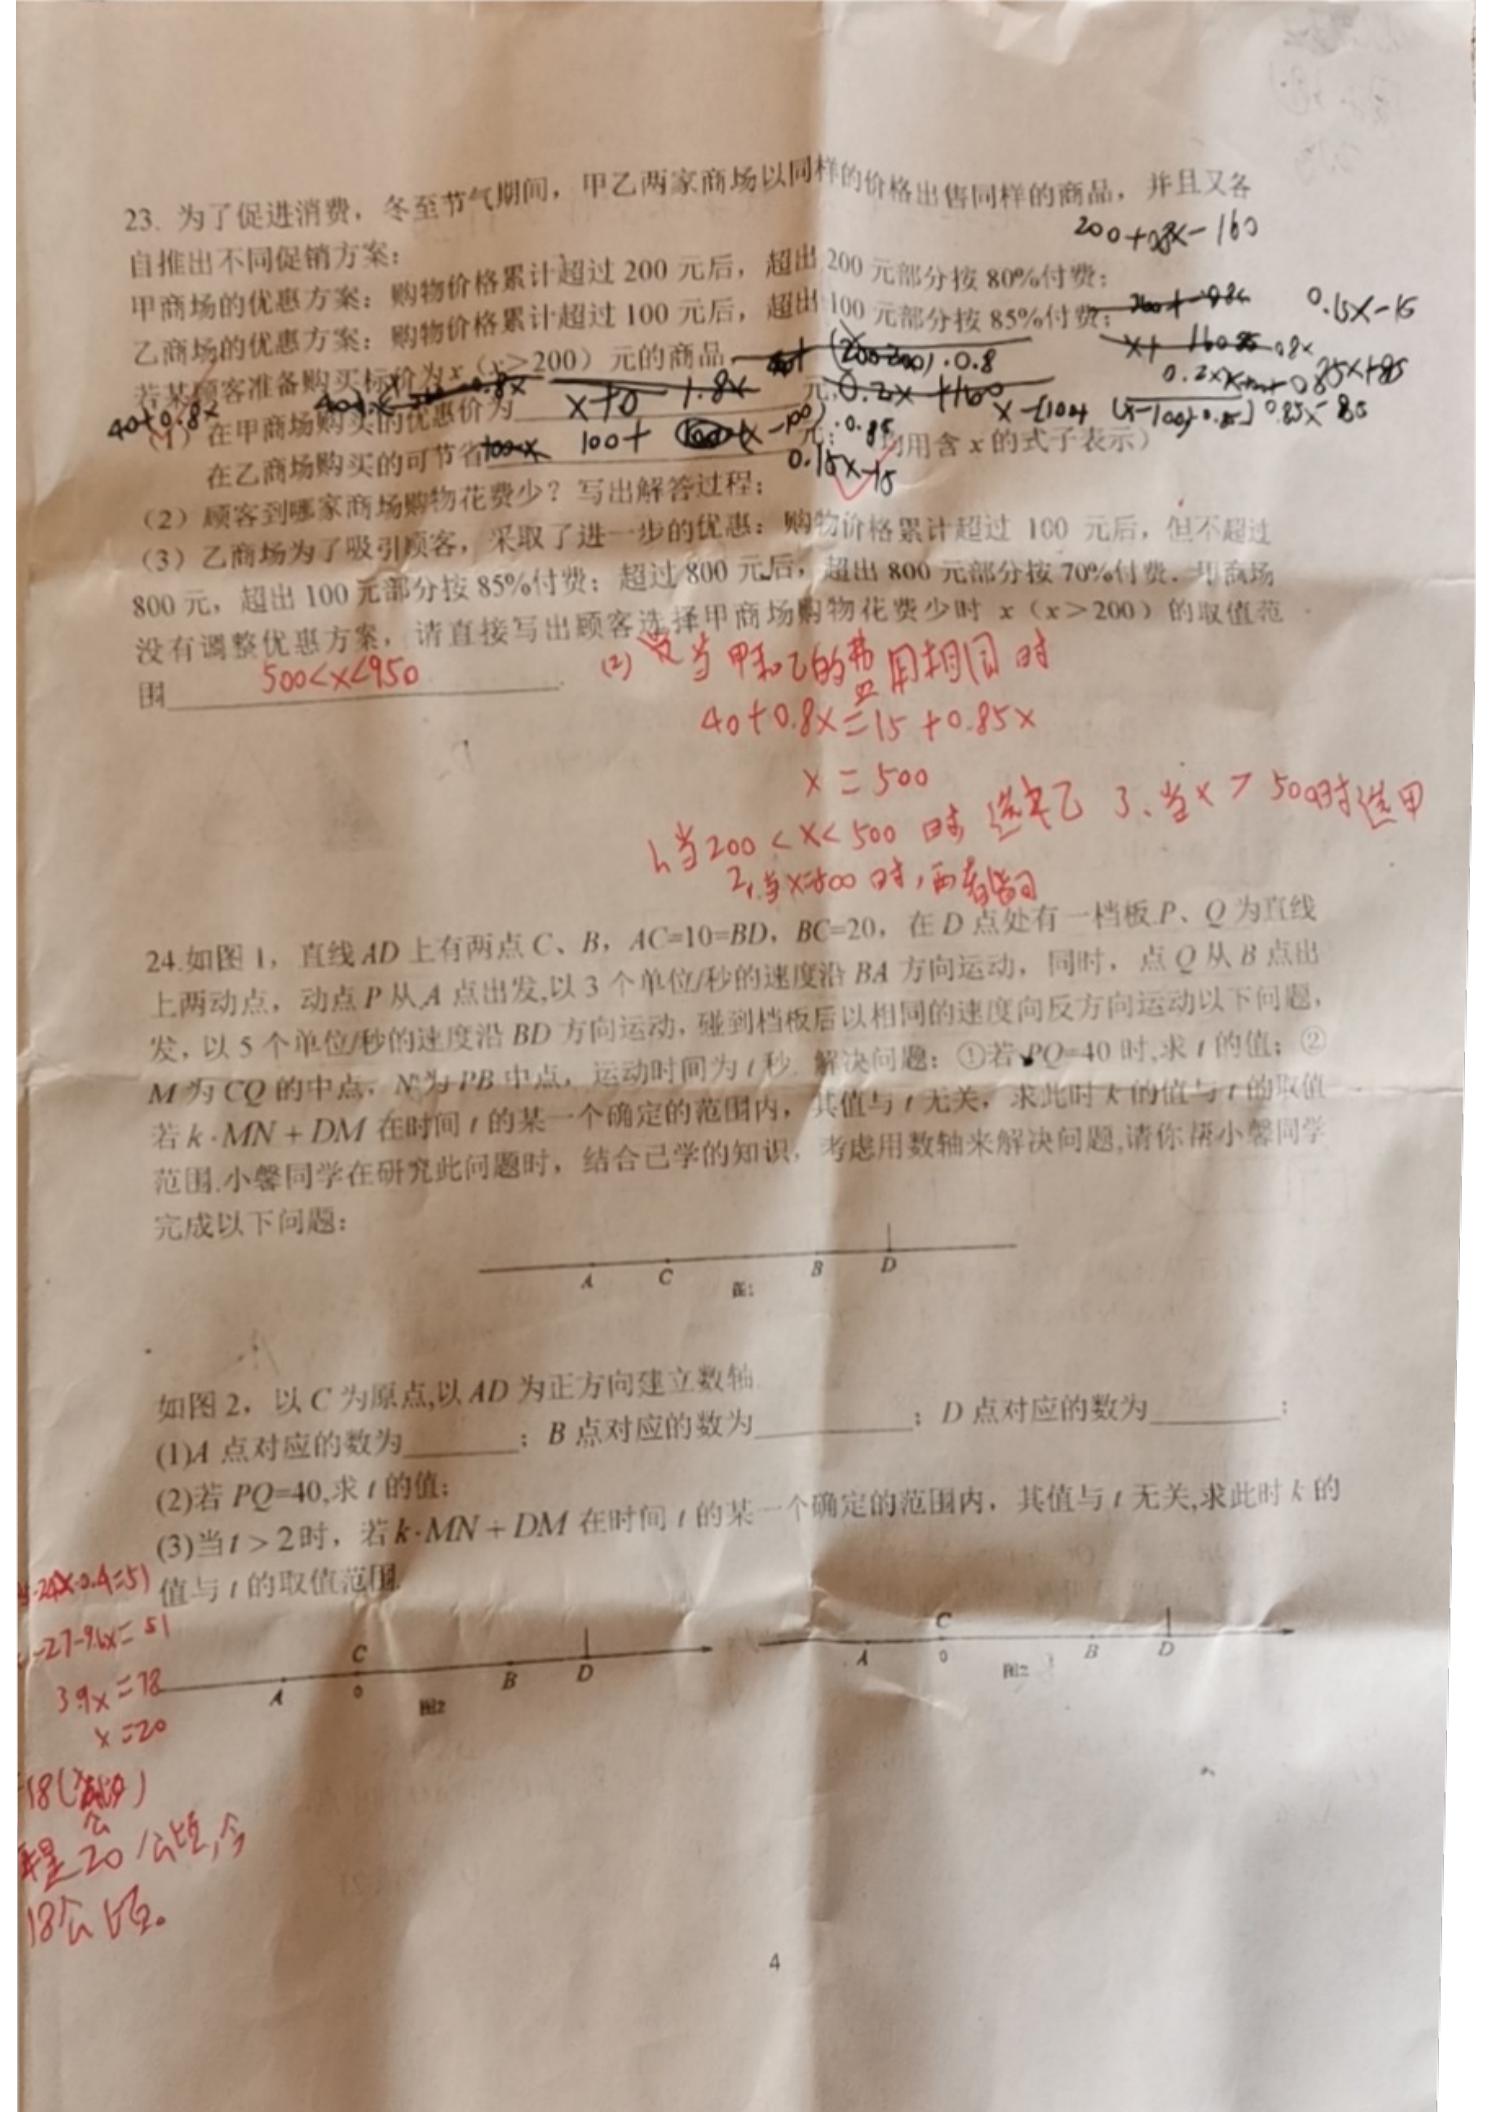 23. 为了促进消费，冬至节气期间，甲乙两家商场以同样的价格出售同样的商品，并且又各
200+0.8x-160
自推出不同促销方案：
甲商场的优惠方案：购物价格累计超过 200 元后，超出 200 元部分按 80%付费；
乙商场的优惠方案：购物价格累计超过 100 元后，超出 100 元部分按 85%付费；
0.15x-15
若某顾客准备购买标价为 x（x＞200）元的商品，
40+0.8x
（1）在甲商场购买的优惠价为 元，
在乙商场购买的可节省 元；（均用含 x 的式子表示）
0.15x-15
（2）顾客到哪家商场购物花费少？写出解答过程；
（3）乙商场为了吸引顾客，采取了进一步的优惠：购物价格累计超过 100 元后，但不超过
800 元，超出 100 元部分按 85%付费；超过 800 元后，超出 800 元部分按 70%付费．甲商场
没有调整优惠方案，请直接写出顾客选择甲商场购物花费少时 x（x＞200）的取值范
围 500<x<950
(2) 当甲和乙的费用相同时
40+0.8x=15+0.85x
x=500
1、当200<x<500时 选择乙 3、当x>500时选甲
2、当x=500时，两者皆可
24.如图 1，直线 AD 上有两点 C、B，AC=10=BD，BC=20，在 D 点处有一档板.P、Q 为直线
上两动点，动点 P 从 A 点出发,以 3 个单位/秒的速度沿 BA 方向运动，同时，点 Q 从 B 点出
发，以 5 个单位/秒的速度沿 BD 方向运动，碰到档板后以相同的速度向反方向运动以下问题，
M 为 CQ 的中点，N 为 PB 中点，运动时间为 t 秒. 解决问题：①若 PQ=40 时,求 t 的值；②
若 k·MN+DM 在时间 t 的某一个确定的范围内，其值与 t 无关，求此时 k 的值与 t 的取值
范围.小馨同学在研究此问题时，结合已学的知识，考虑用数轴来解决问题,请你帮小馨同学
完成以下问题：
A C B D
图1
如图 2，以 C 为原点,以 AD 为正方向建立数轴.
(1)A 点对应的数为________；B 点对应的数为__________；D 点对应的数为________；
(2)若 PQ=40,求 t 的值；
(3)当 t＞2 时，若 k·MN+DM 在时间 t 的某一个确定的范围内，其值与 t 无关,求此时 k 的
值与 t 的取值范围.
A C 0 B D
图2
A C 0 B D
图2
-27-9.6x=51
3.9x=78
x=20
20公顷,今
18公顷。
4